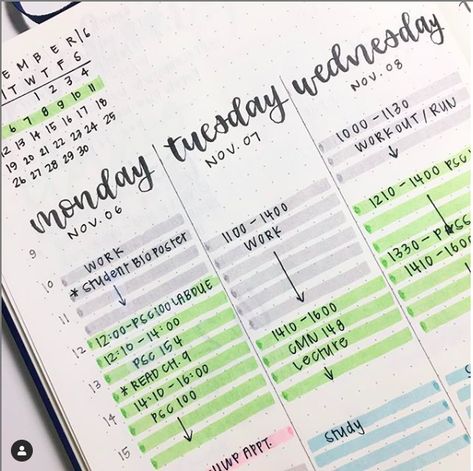 EMBER/6
T W T F S
1 2 3 4
6 7 8 9 10 11
12 13 14 15 16 17 18
19 20 21 22 23 24 25
26 27 28 29 30
monday
NOV. 06
9
10
11
12
13
14
15
WORK
* Student Bio Poster
12:00-PSC100 LAB DUE
12:10-14:00
PSC 154
* READ CH. 9
14:10-16:00
PSC 100
tuesday
NOV. 07
1100-1400
WORK
1410-1600
CMN 148
Lecture
APPT.
wednesday
NOV. 08
1000-1130
WORKOUT/RUN
1210-1400 PSC
1330-
1410-160
Study